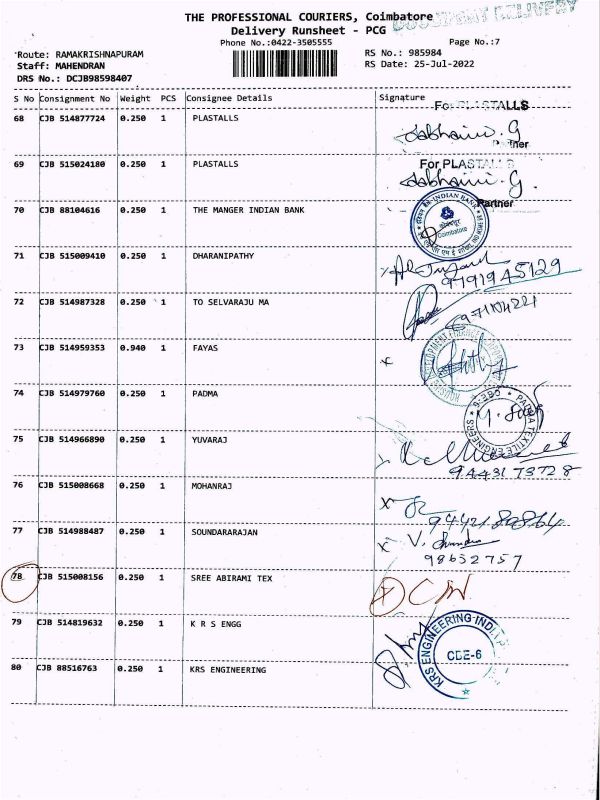 THE PROFESSIONAL COURIERS, Coimbatore
DOCUMENT DELIVERY
Delivery Runsheet - PCG
Phone No.:0422-3505555
Page No.:7
Route: RAMAKRISHNAPURAM
RS No.: 985984
Staff: MAHENDRAN
RS Date: 25-Jul-2022
DRS No.: DCJB98598407
S No Consignment No Weight PCS Consignee Details Signature
For PLASTALLS
68 CJB 514877724 0.250 1 PLASTALLS
Partner
69 CJB 515024180 0.250 1 PLASTALLS For PLASTALLS
Partner
70 CJB 88104616 0.250 1 THE MANGER INDIAN BANK
INDIAN BANK
Coimbatore
71 CJB 515009410 0.250 1 DHARANIPATHY
9791945129
72 CJB 514987328 0.250 1 TO SELVARAJU MA
73 CJB 514959353 0.940 1 FAYAS
74 CJB 514979760 0.250 1 PADMA
PADMA TEXTILE ENGINEERS
75 CJB 514966890 0.250 1 YUVARAJ
9443173728
76 CJB 515008668 0.250 1 MOHANRAJ
77 CJB 514988487 0.250 1 SOUNDARARAJAN
98652757
78 CJB 515008156 0.250 1 SREE ABIRAMI TEX
79 CJB 514819632 0.250 1 K R S ENGG
80 CJB 88516763 0.250 1 KRS ENGINEERING
KRS ENGINEERING IND
CBE-6